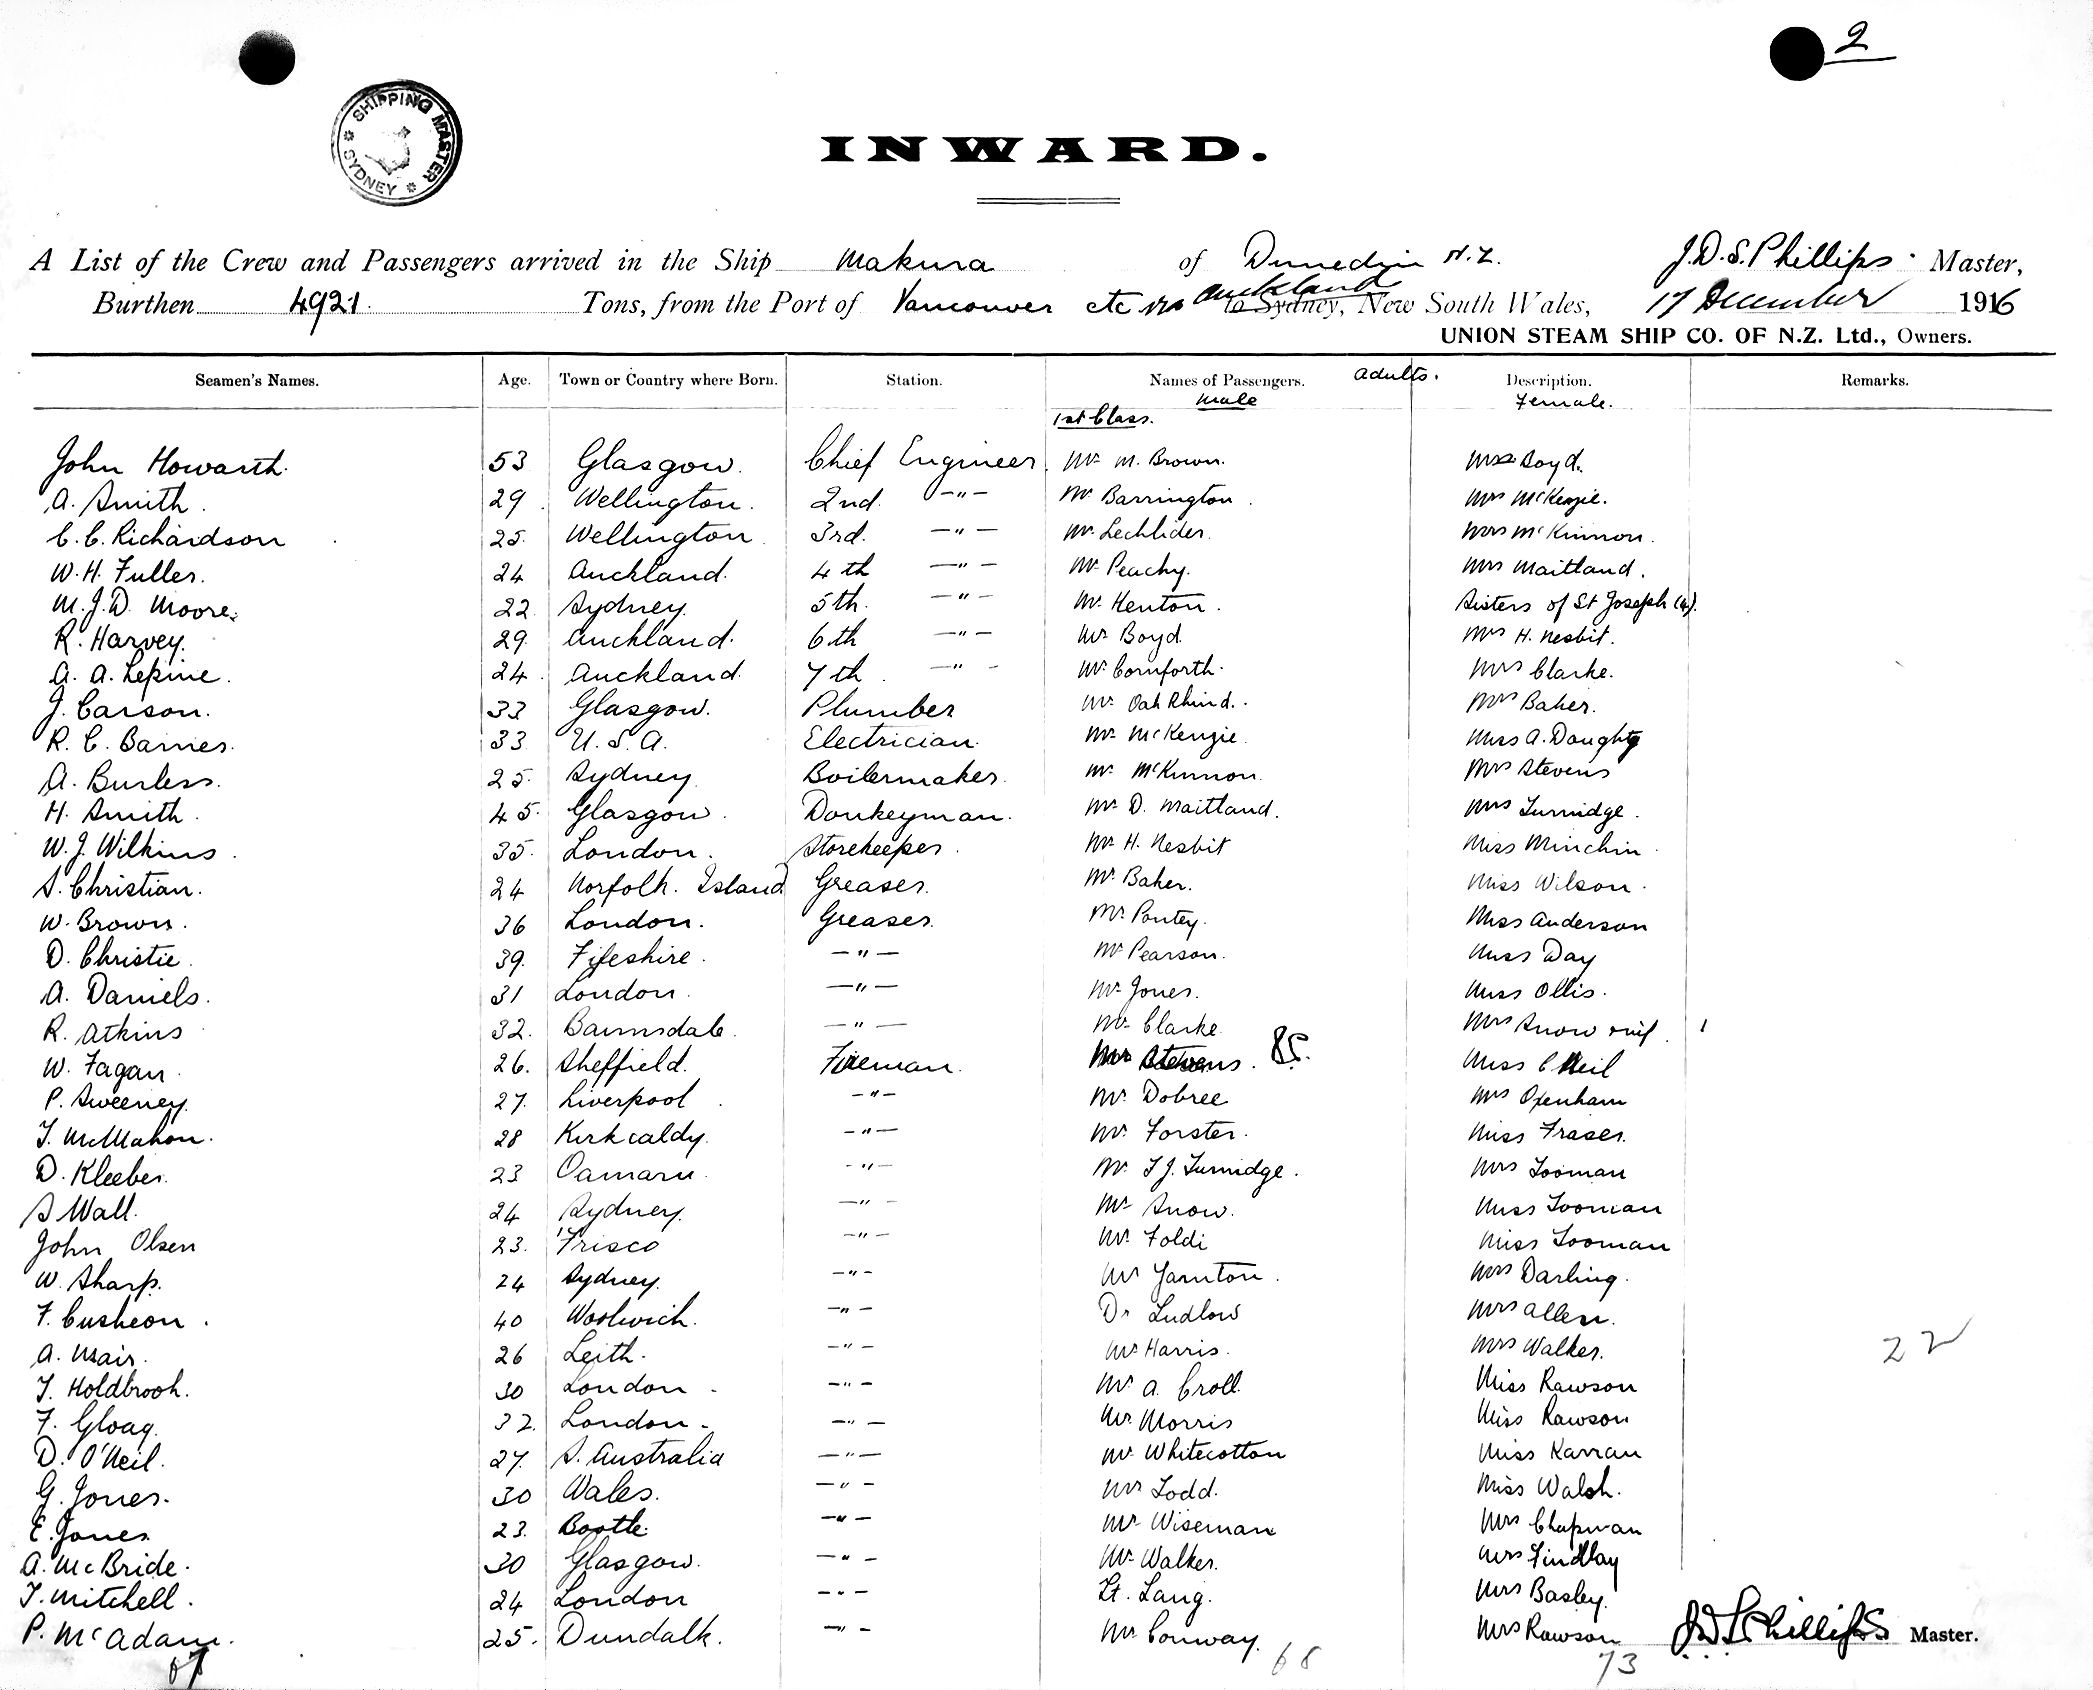 2
SHIPPING MASTER
SYDNEY
INWARD.
A List of the Crew and Passengers arrived in the Ship Makura of Dunedin N.Z. J.D.S. Phillips. Master,
Burthen 4921. Tons, from the Port of Vancouver etc via Auckland to Sydney, New South Wales, 17 December 1916
UNION STEAM SHIP CO. OF N.Z. Ltd., Owners.
Seamen's Names. Age. Town or Country where Born. Station. Names of Passengers. Adults. Description. Remarks.
Male Female.
1st Class.
John Howarth. 53 Glasgow. Chief Engineer. Mr M. Brown. Boyd.
A. Smith. 29 Wellington. 2nd. —"— Mr Barrington. Mrs McKenzie.
C.C. Richardson 25. Wellington 3rd. —"— Mr. Lechlider. Mrs McKinnon.
W.H. Fuller. 24 Auckland. 4th —"— Mr Peachy. Mrs Maitland.
M.J.D. Moore. 22. Sydney. 5th. —"— Mr. Kenton. Sisters of St Joseph (4).
R. Harvey. 29. Auckland. 6th —"— Mr Boyd Mrs H. Nesbit.
A. A. Lepine. 24. Auckland. 7th. —"— Mr. Cornforth. Mrs Clarke.
J. Carson. 33 Glasgow. Plumber Mr. Oak Rhind. Mrs Baker.
R. C. Barnes. 33 U.S.A. Electrician. Mr McKenzie. Miss A. Doughty
A. Burless. 25. Sydney. Boilermaker. Mr McKinnon. Mrs Stevens
H. Smith. 45. Glasgow. Donkeyman. Mr D. Maitland. Mrs Turnidge.
W.J. Wilkins. 35. London. Storekeeper. Mr H. Nesbit Miss Minchin.
S. Christian. 24 Norfolk. Island Greaser. Mr Baker. Miss Wilson.
W. Brown. 36 London. Greaser. Mr Pontey. Miss Anderson
D. Christie. 39. Fifeshire. —"— Mr Pearson. Miss Day
A. Daniels. 31 London. —"— Mr Jones. Miss Ollis.
R. Atkins 32. Bairnsdale. —"— Mr. Clarke Mrs Snow & inf. 1
W. Fagan. 26. Sheffield. Fireman. Mr Stevens. Miss C Neil
P. Sweeney. 27. Liverpool. —"— Mr. Dobree Mrs Oxenham
T. McMahon. 28 Kirkcaldy. —"— Mr. Forster. Miss Fraser.
D. Kleeber. 23 Oamaru. —"— Mr. T.J. Turnidge. Mrs Tooman
S Wall. 24 Sydney. —"— Mr Snow. Miss Tooman
John Olsen 23. 'Frisco —"— Mr. Foldi Miss Tooman
W. Sharp. 24 Sydney. —"— Mr Yarnton. Mrs Darling.
F. Cusheon. 40 Woolwich. —"— Dr Ludlow Mrs Allen.
A. Mair. 26 Leith. —"— Mr Harris. Mrs Walker. 22
T. Holdbrook. 30 London. —"— Mr A. Croll. Miss Rawson
F. Gloag. 32. London. —"— Mr. Morris Miss Rawson
D. O'Neil. 27. S. Australia —"— Mr. Whitecotton Miss Karran
G. Jones. 30 Wales. —"— Mr Todd. Miss Walsh.
E. Jones. 23. Bootle. —"— Mr. Wiseman Mrs Chapman
A. McBride. 30 Glasgow. —"— Mr. Walker. Mrs Findlay
T. Mitchell. 24 London —"— Lt. Lang. Mrs Basley.
P. McAdam. 25. Dundalk. —"— Mr. Conway. Mrs Rawson J.D.S. Phillips Master.
68 73